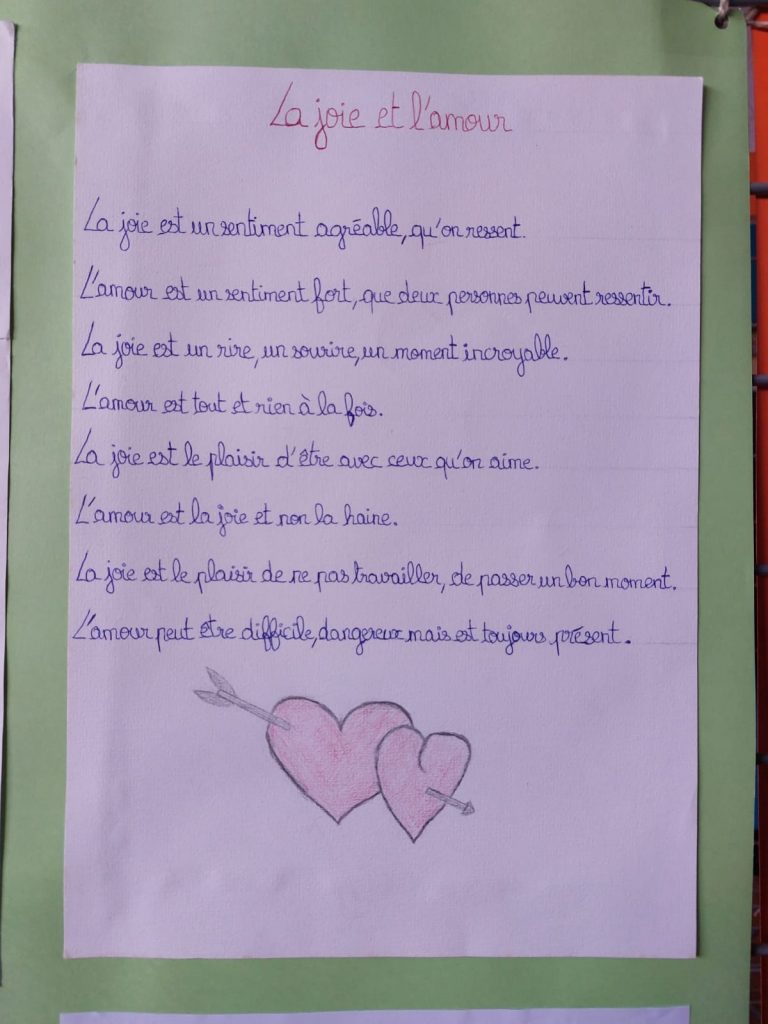 La joie et l'amour
La joie est un sentiment agréable, qu'on ressent.
L'amour est un sentiment fort, que deux personnes peuvent ressentir.
La joie est un rire, un sourire, un moment incroyable.
L'amour est tout et rien à la fois.
La joie est le plaisir d'être avec ceux qu'on aime.
L'amour est la joie et non la haine.
La joie est le plaisir de ne pas travailler, de passer un bon moment.
L'amour peut être difficile, dangereux mais est toujours présent.